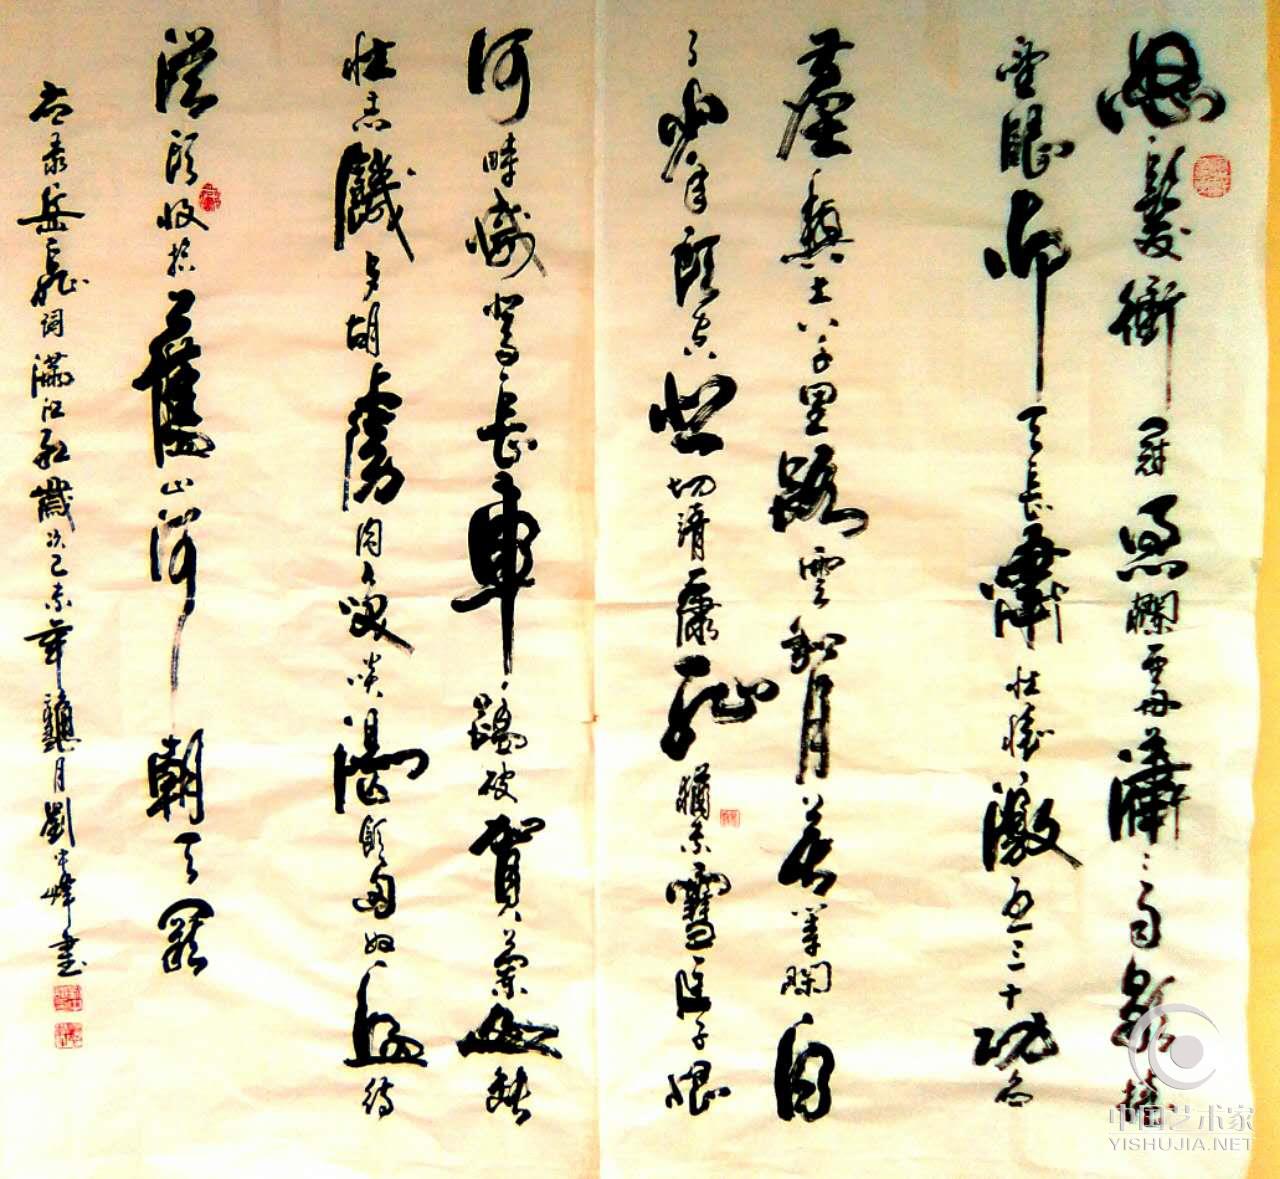 怒髮衝冠凭欄處瀟〻雨歇擡
望眼仰天長嘯壯懷激烈三十功名
塵與土八千里路雲和月莫等閑白
了少年頭空悲切靖康恥猶未雪臣子恨
何時滅駕長車踏破賀蘭山缺
壯志飢餐胡虜肉笑談渴飲匈奴血待
從頭收拾舊山河朝天闕
录岳飛詞滿江紅歲次己未年龝月劉書
中国艺术家
YISHUJIA.NET